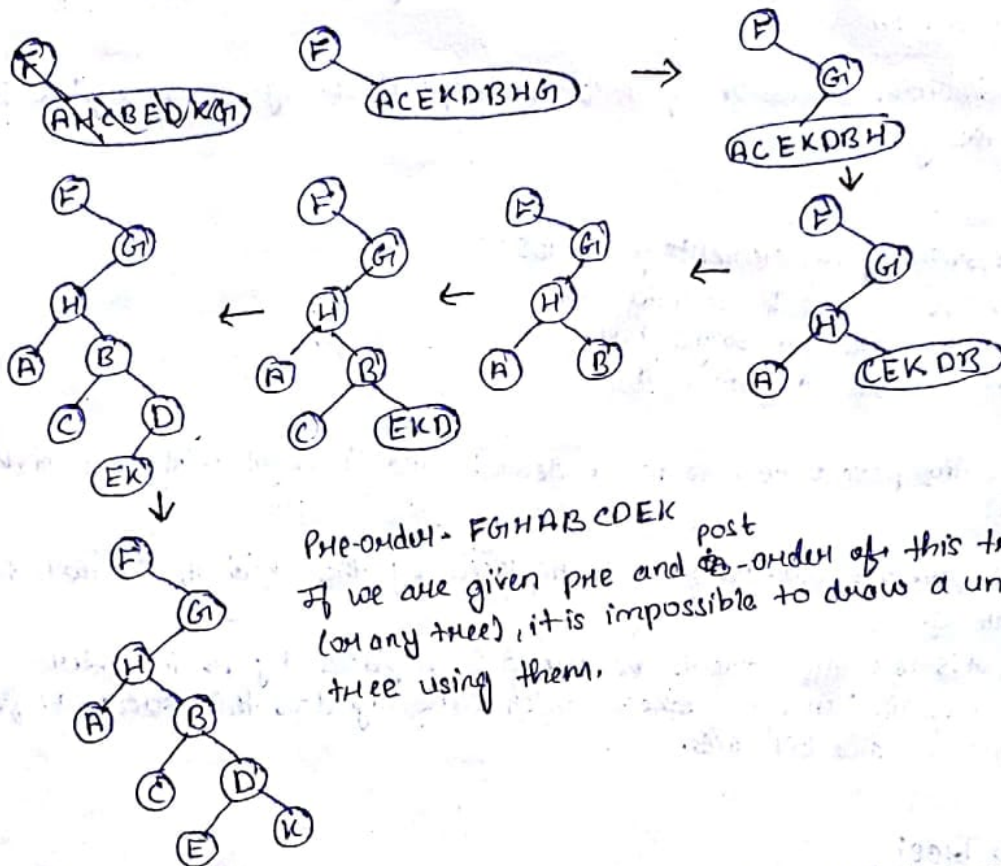 F
AHCBEDKG
F
ACEKDBHG
→
F
G
ACEKDBH
↓
F
G
H
A
B
C
D
EK
↓
←
F
G
H
A
B
C
EKD
←
F
G
H
A
B
←
F
G
H
A
CEKDB
F
G
H
A
B
C
D
E
K
Pre-order - FGHABCDEK
If we are given pre and post-order of this
(or any tree), it is impossible to draw a
tree using them.